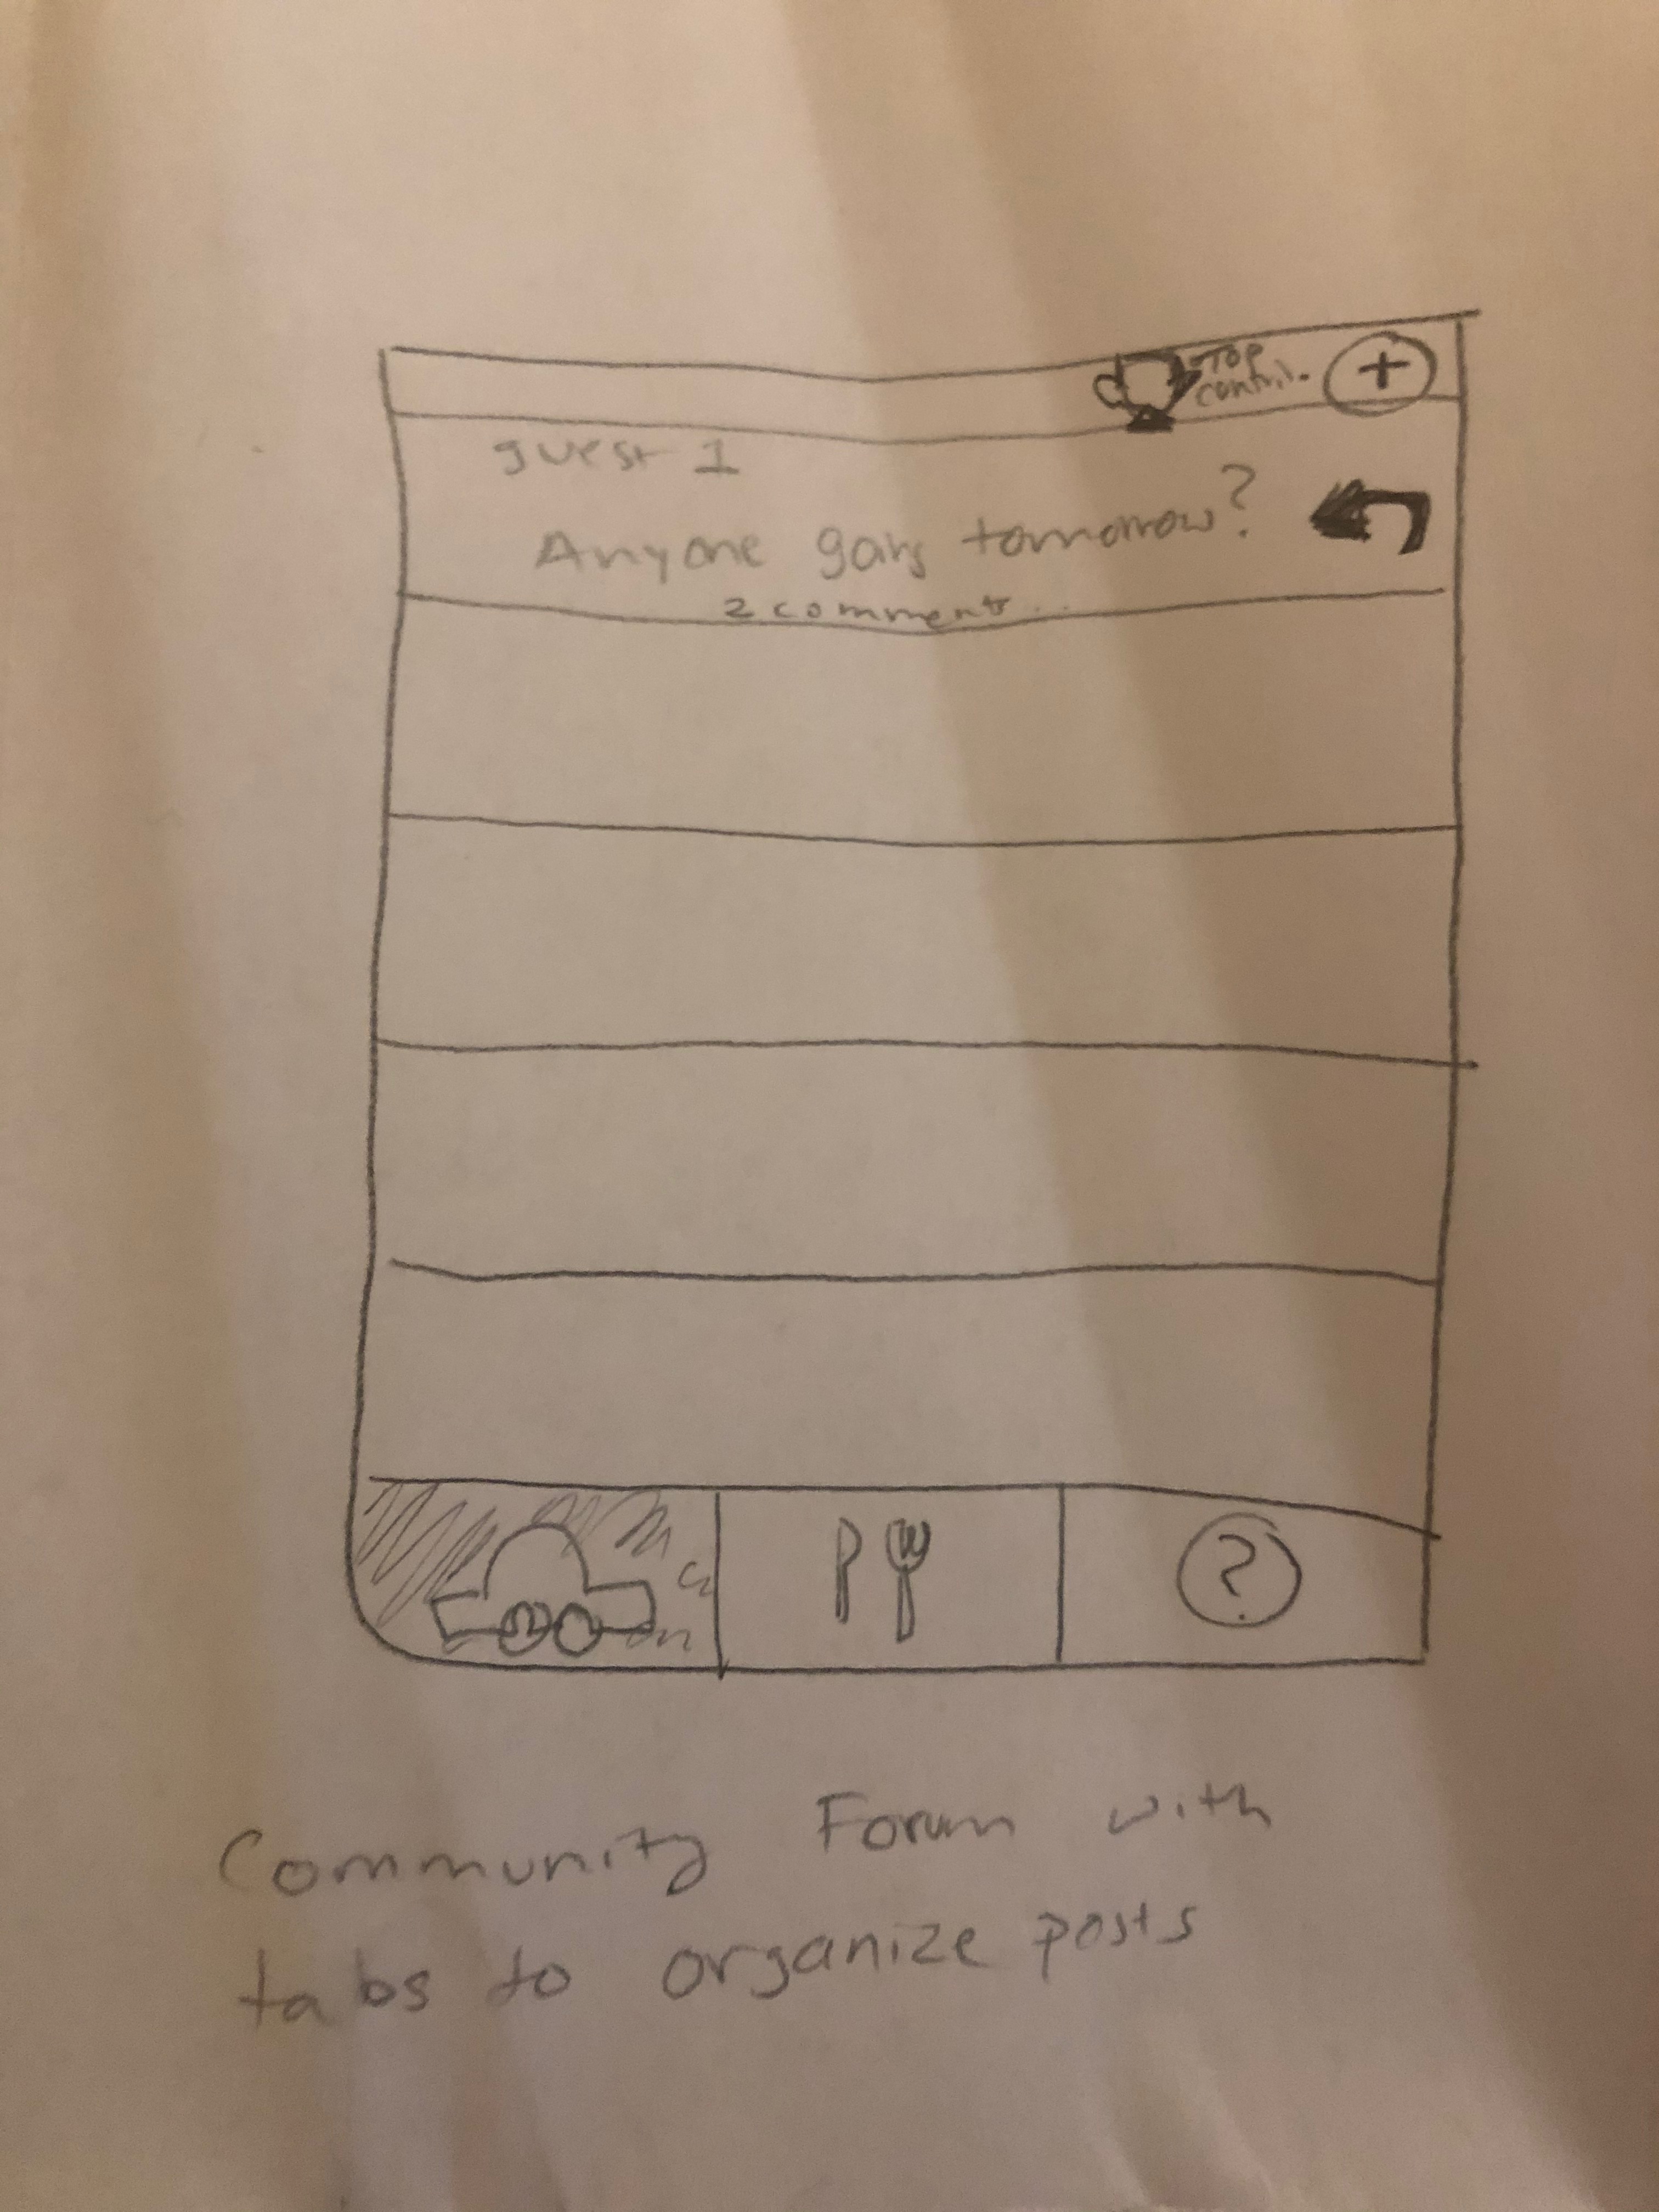 Top
contri.
+
guest 1
Anyone going tomorrow?
2 comments..
?
Community Forum with
tabs to organize posts